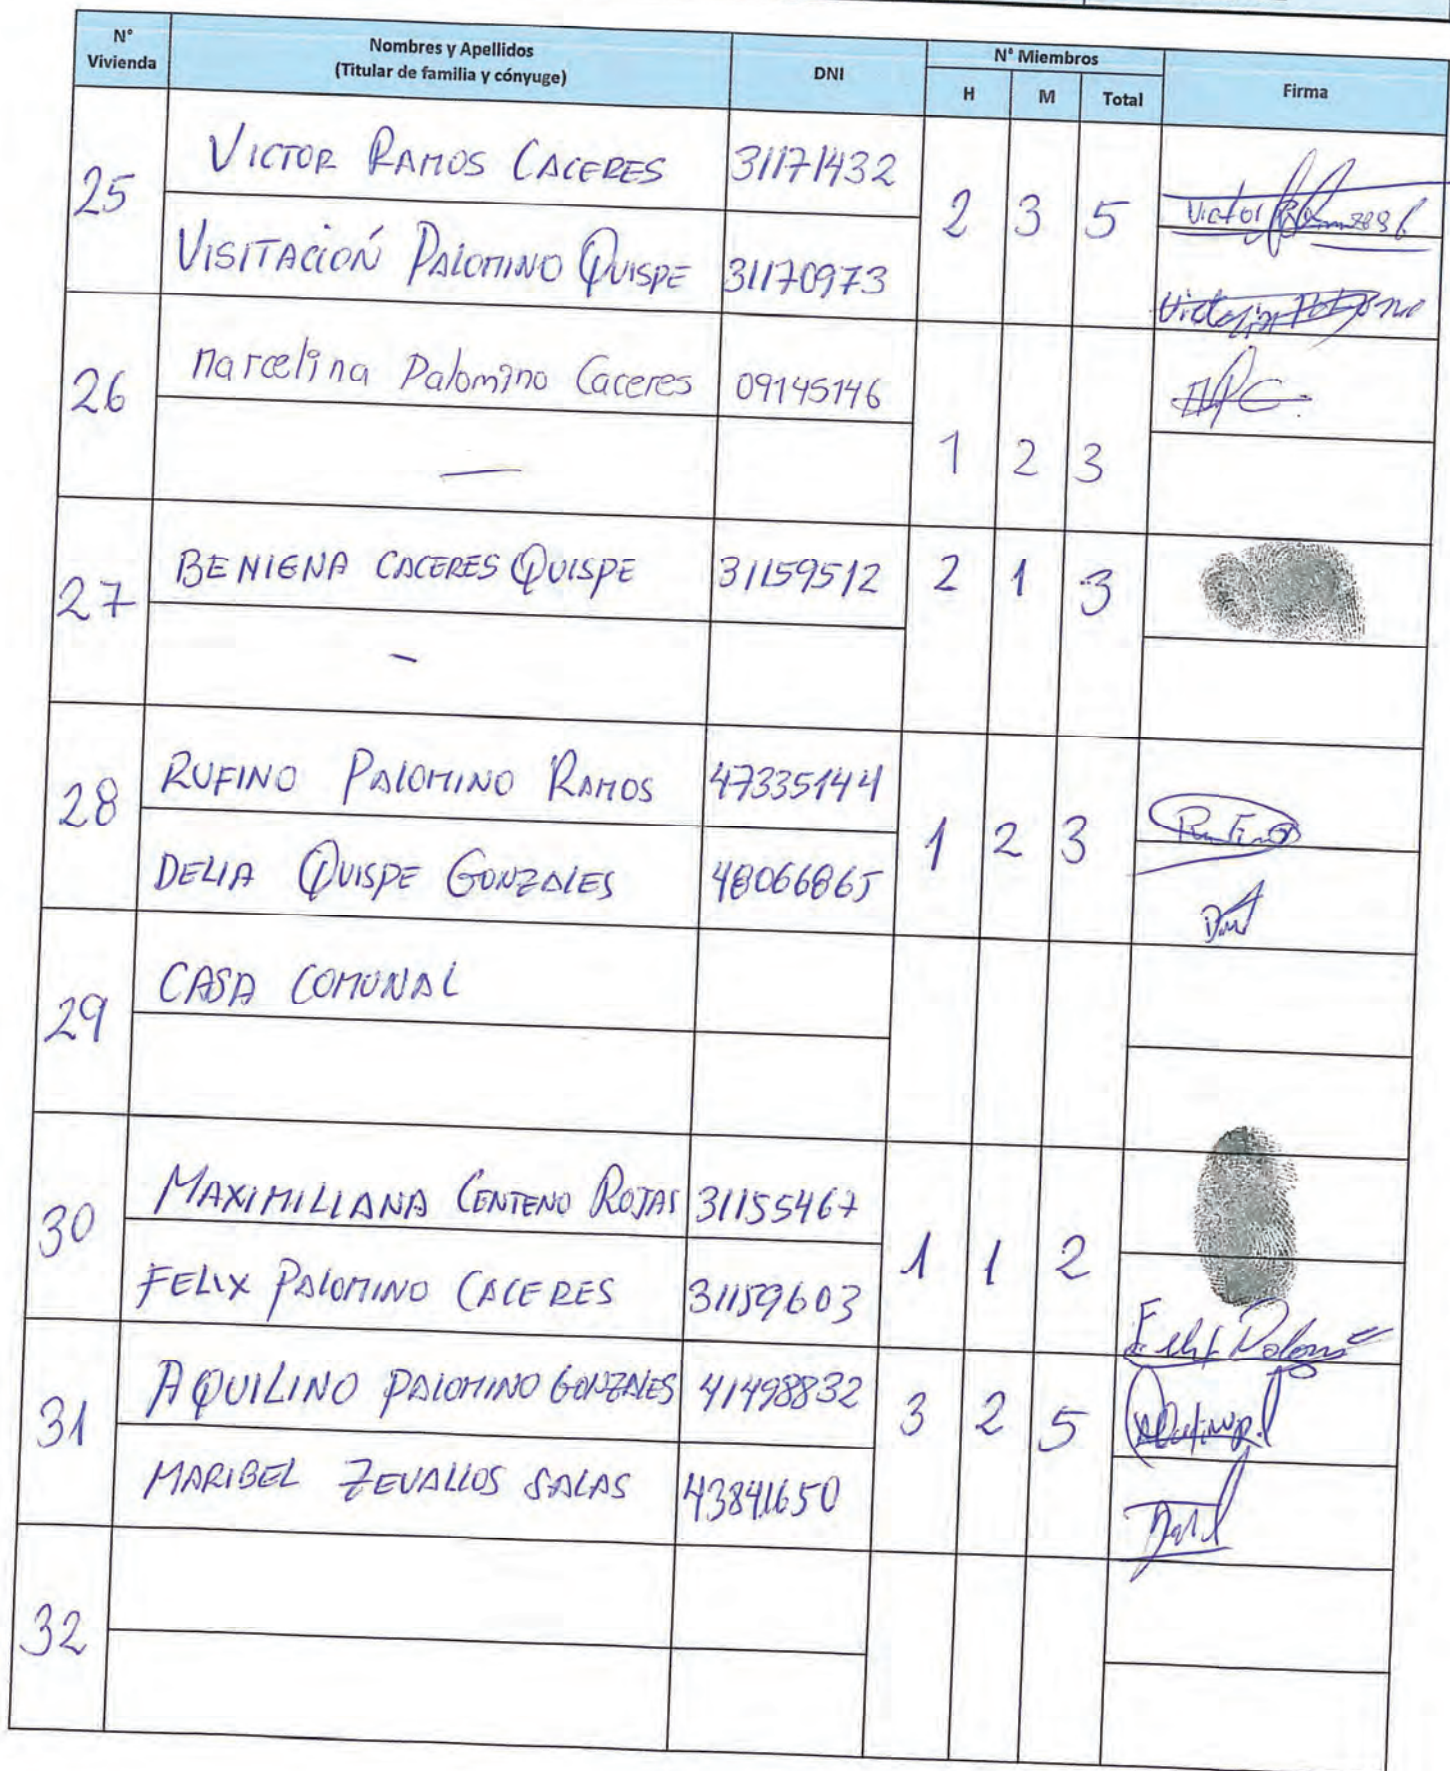 N° Vivienda Nombres y Apellidos (Titular de familia y cónyuge) DNI N° Miembros H M Total Firma
25 VICTOR RAMOS CACERES 31171432 2 3 5 Victor
VISITACIÓN PALOMINO QUISPE 31170973
26 Marcelina Palomino Caceres 09145146 1 2 3 MPC
—
27 BENIGNA CACERES QUISPE 31159512 2 1 3
-
28 RUFINO PALOMINO RAMOS 47335144 1 2 3 Rufino
DELIA QUISPE GONZALES 48066865
29 CASA COMUNAL
30 MAXIMILIANA CENTENO ROJAS 31155467 1 1 2
FELIX PALOMINO CACERES 31159603
31 AQUILINO PALOMINO GONZALES 41498832 3 2 5
MARIBEL ZEVALLOS SALAS 43841650
32